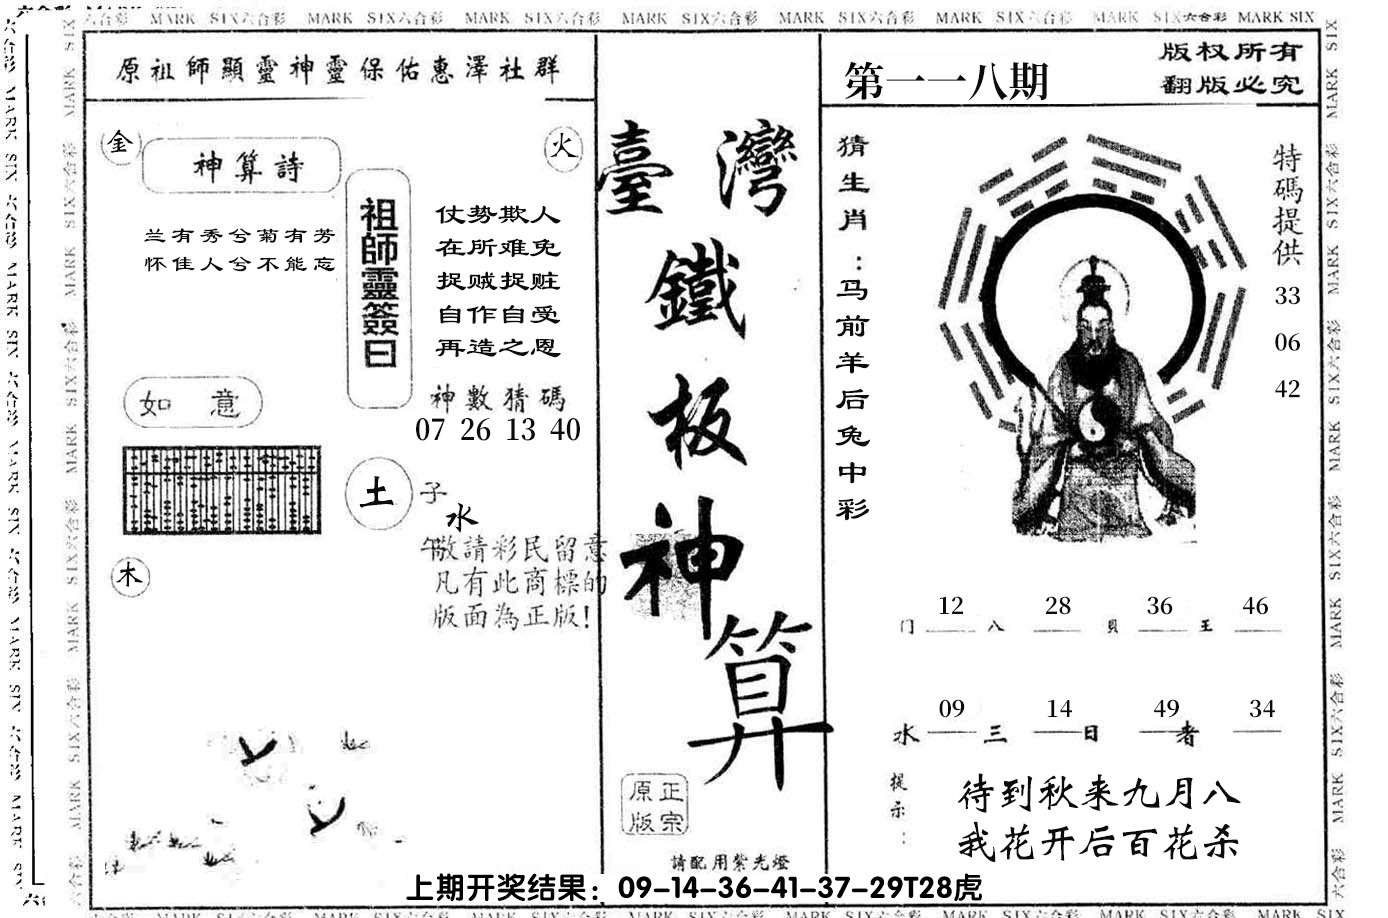 MARK SIX六合彩 MARK SIX六合彩 MARK SIX六合彩 MARK SIX六合彩 MARK SIX六合彩 MARK SIX六合彩 MARK SIX六合彩 MARK SIX
原祖師顯靈神靈保佑惠澤社群
金
火
神算詩
兰有秀兮菊有芳
怀佳人兮不能忘
祖師靈簽曰
仗势欺人
在所难免
捉贼捉赃
自作自受
再造之恩
神數猜碼
07 26 13 40
如 意
土
子
水
午
木
敬請彩民留意
凡有此商標的
版面為正版!
臺灣
鐵
板
神
算
正宗
原版
請配用紫光燈
第一一八期
版权所有
翻版必究
猜生肖:马前羊后兔中彩
特碼提供
33
06
42
12 28 36 46
门 八 貝 王
09 14 49 34
水 三 日 者
提示:
待到秋来九月八
我花开后百花杀
上期开奖结果：09-14-36-41-37-29T28虎